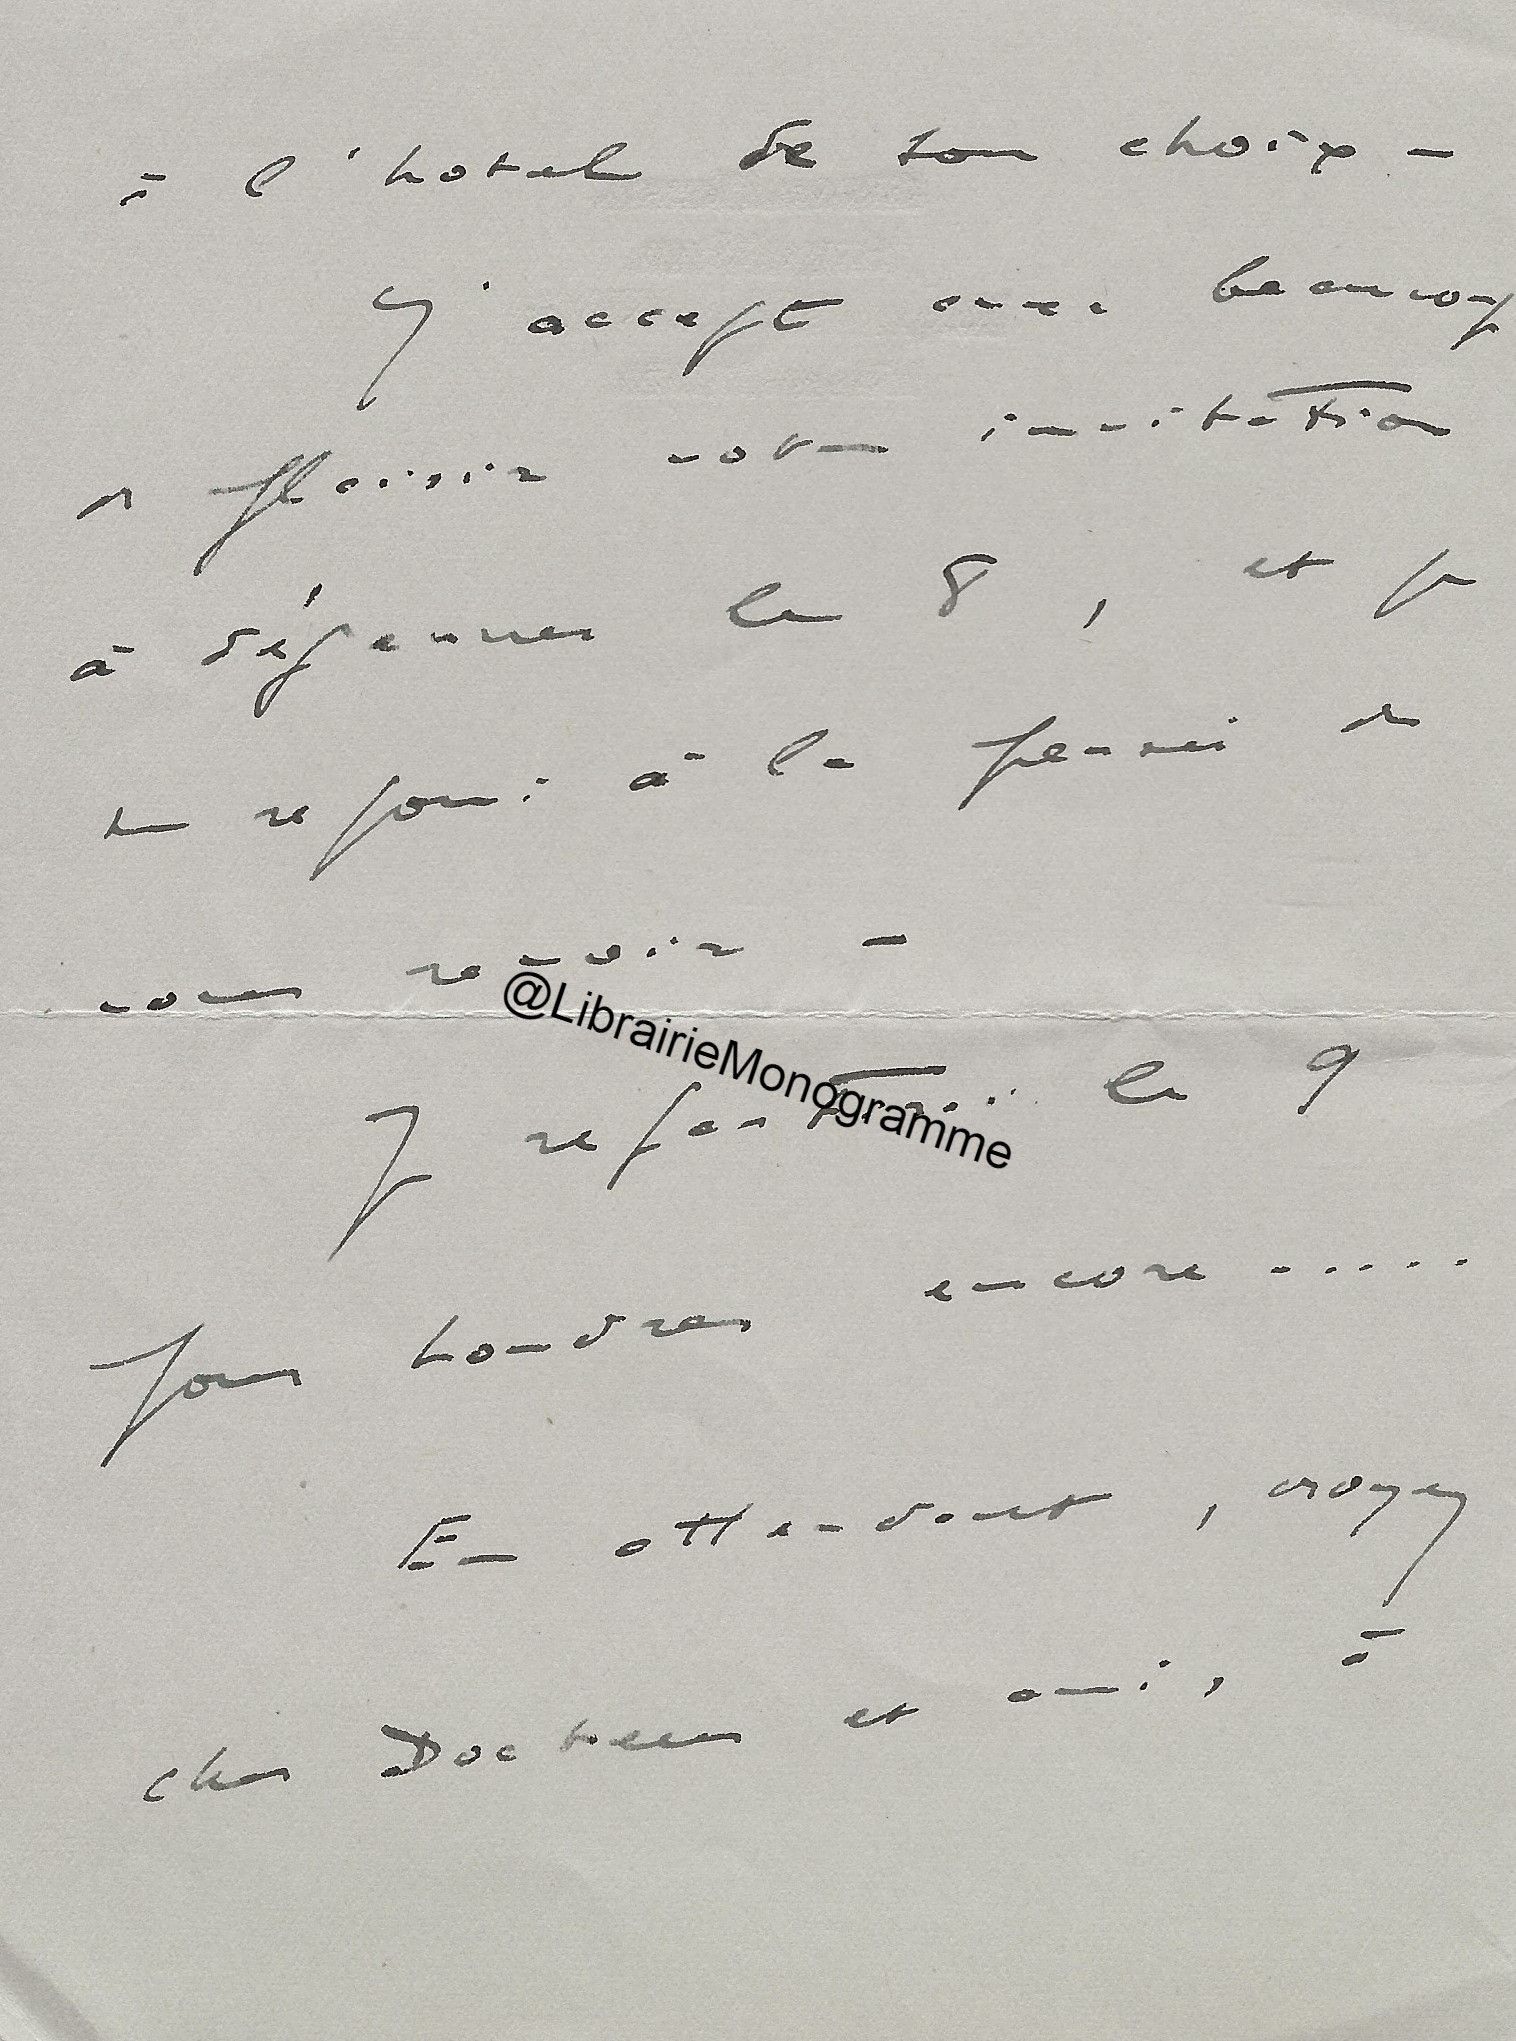 à l'hotel de son choix –
J'accepte avec beaucoup
de plaisir votre invitation
à déjeuner le 8, et je
me rejouis à la pensée de
vous revoir –
@LibrairieMonogramme
Je repartirai le 9
pour Londres encore .....
En attendant, croyez
cher Docteur et ami, à